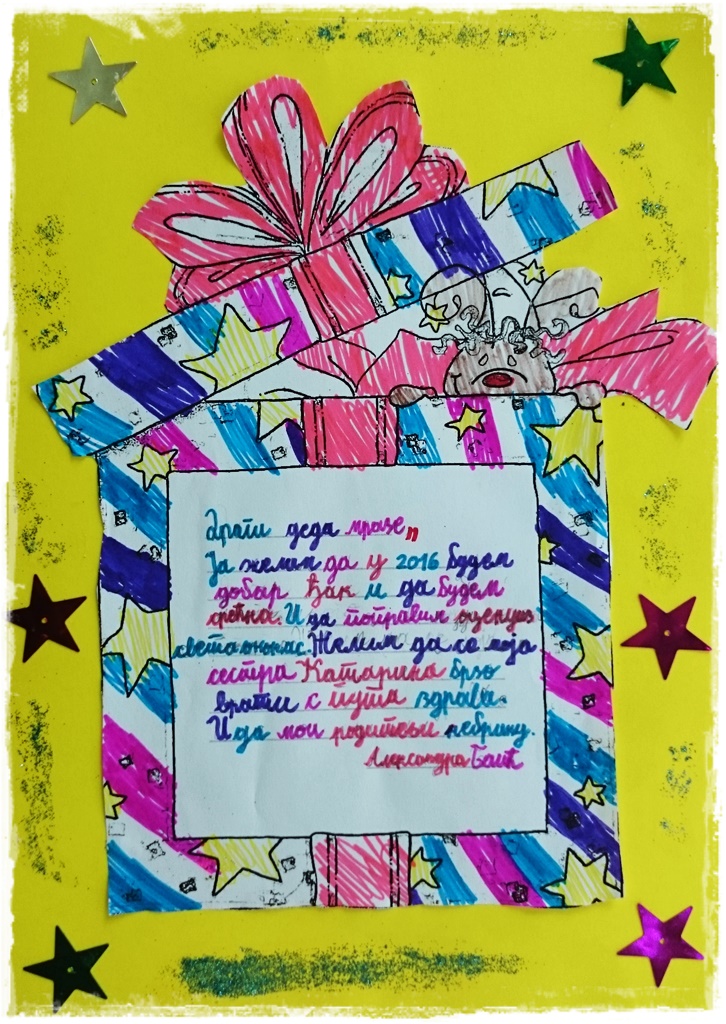 Драги деда мразе,,
Ја желим да у 2016 будем
добар ђак и да будем
срећна. И да поправим оцену из
света око нас. Желим да се моја
сестра Катарина брзо
врати с пута здрава.
И да мои родитељи небрину.
Александра Баић